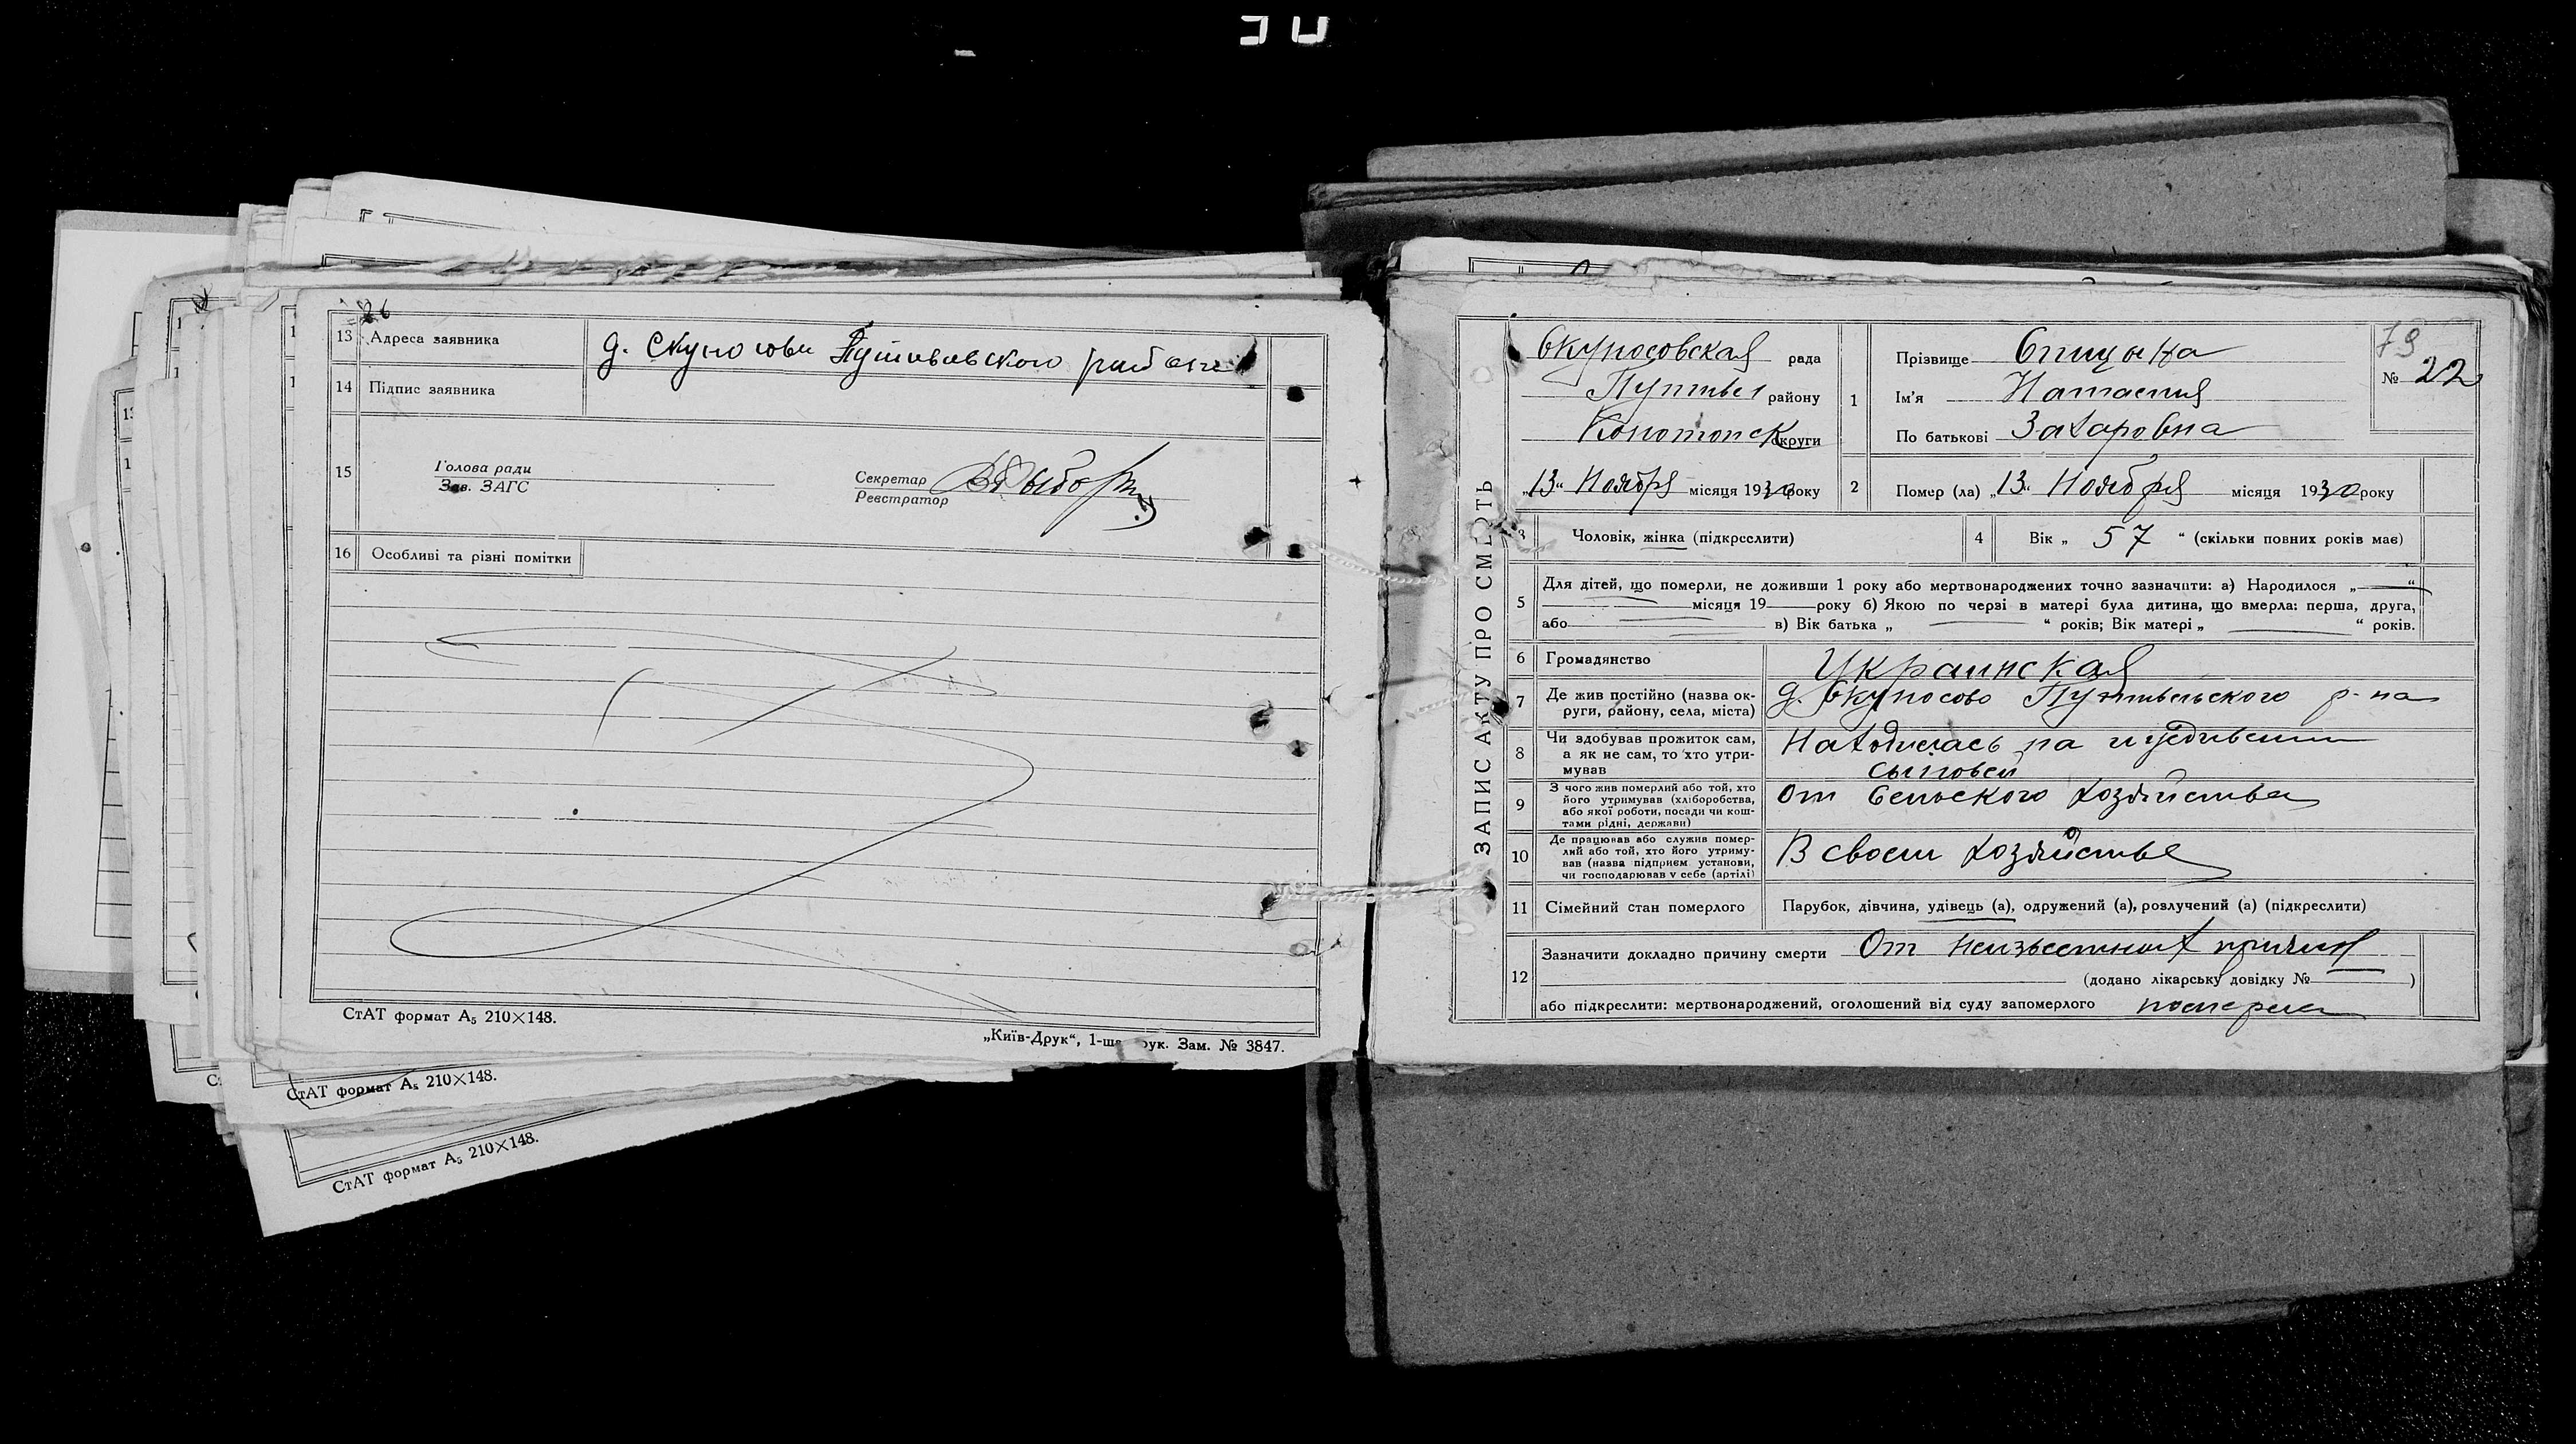 26
13 Адреса заявника
д. Скуносово Путивльского района
14 Підпис заявника
15
Голова ради
Зав. ЗАГС
Секретар
Реєстратор
16 Особливі та різні помітки
СтАТ формат А5 210×148.
„Київ-Друк“, 1-ша рук. Зам. № 3847.
СтАТ формат А5 210×148.
СтАТ формат А5 210×148.
ЗАПИС АКТУ ПРО СМЕРТЬ
Скуносовская рада
Путивл району
Конотопск округи
„13“ Ноября місяця 1930 року
1
Прізвище Спицына
Ім'я Настасия
По батькові Захаровна
79
№ 22
2 Помер (ла) „13“ Ноября місяця 1930 року
3 Чоловік, жінка (підкреслити)
4 Вік „ 57 “ (скільки повних років має)
5 Для дітей, що померли, не доживши 1 року або мертвонароджених точно зазначити: а) Народилося „ “
місяця 19 року б) Якою по черзі в матері була дитина, що вмерла: перша, друга,
або в) Вік батька „ “ років; Вік матері „ “ років.
6 Громадянство Украинская
7 Де жив постійно (назва ок-
руги, району, села, міста)
д. Скуносово Путивльского р-на
8 Чи здобував прожиток сам,
а як не сам, то хто утри-
мував
Находилась на иждивении
сыновей
9 З чого жив померлий або той, хто
його утримував (хліборобства,
або якої роботи, посади чи кош-
тами рідні, держави)
От Сельского хозяйства
10 Де працював або служив помер-
лий або той, хто його утриму-
вав (назва підприєм. установи,
чи господарював у себе (артілі)
В своем хозяйстве
11 Сімейний стан померлого Парубок, дівчина, удівець (а), одружений (а), розлучений (а) (підкреслити)
12 Зазначити докладно причину смерти От неизвестных причин
(додано лікарську довідку № )
або підкреслити: мертвонароджений, оголошений від суду запомерлого померла